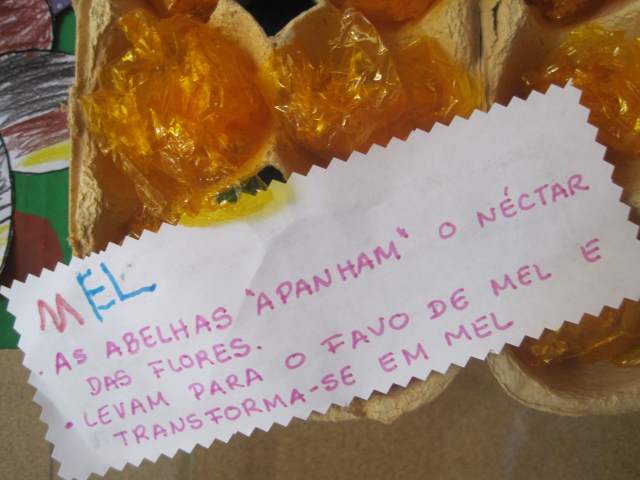 MEL
. AS ABELHAS "APANHAM" O NÉCTAR
DAS FLORES.
• LEVAM PARA O FAVO DE MEL E
TRANSFORMA-SE EM MEL